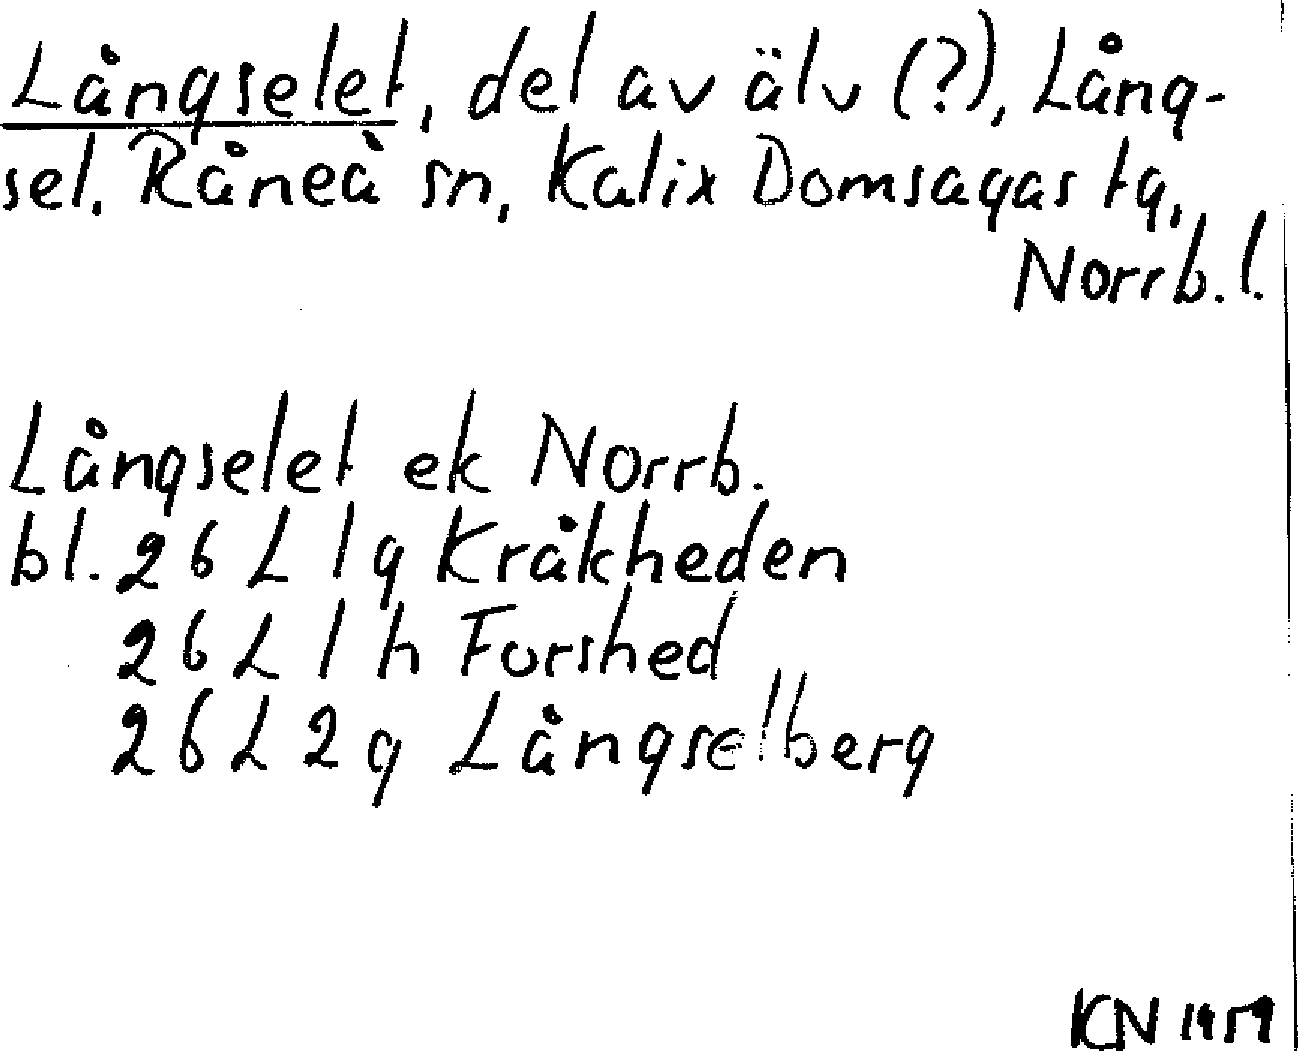 Långselet, del av älv (?), Lång-
sel. Råneå sn, Kalix Domsagas tg,
Norrb. l.
Långselet ek Norrb.
bl. 26 L 1 g Kråkheden
26 L 1 h Forshed
26 L 2 g Långselberg
KN 1959